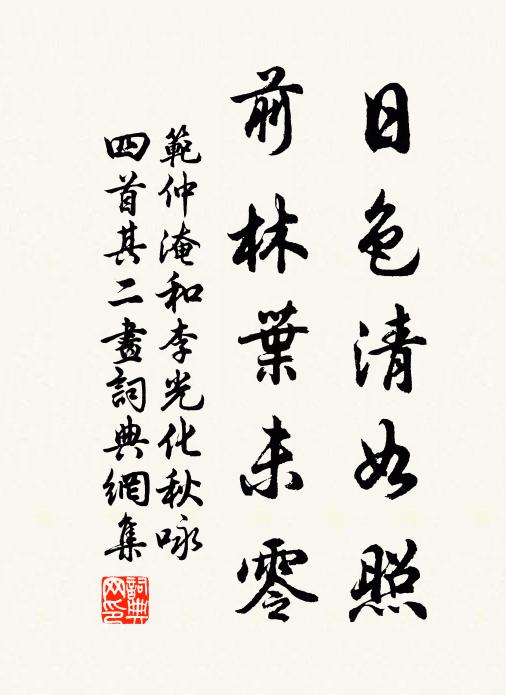 日色清如照
前林葉未零
範仲淹和李光化秋咏
四首其二畫詞典網集
詞典网印